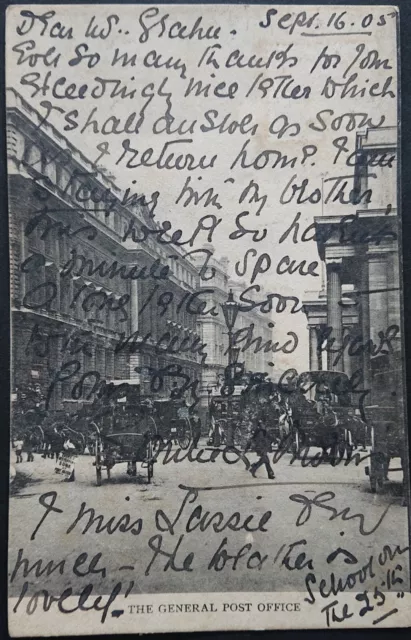 Dear Mr. Graham. Sept. 16. 05
Ever so many thanks for your
exceedingly nice letter which
I shall answer as soon
as I return home. I am
staying with my brother
this week & so haven't
a minute to spare
A long letter soon
with many kind regards
from Yrs. Sincerely
I miss Lassie very
much – the weather is
lovely!
School on
the 25th
THE GENERAL POST OFFICE